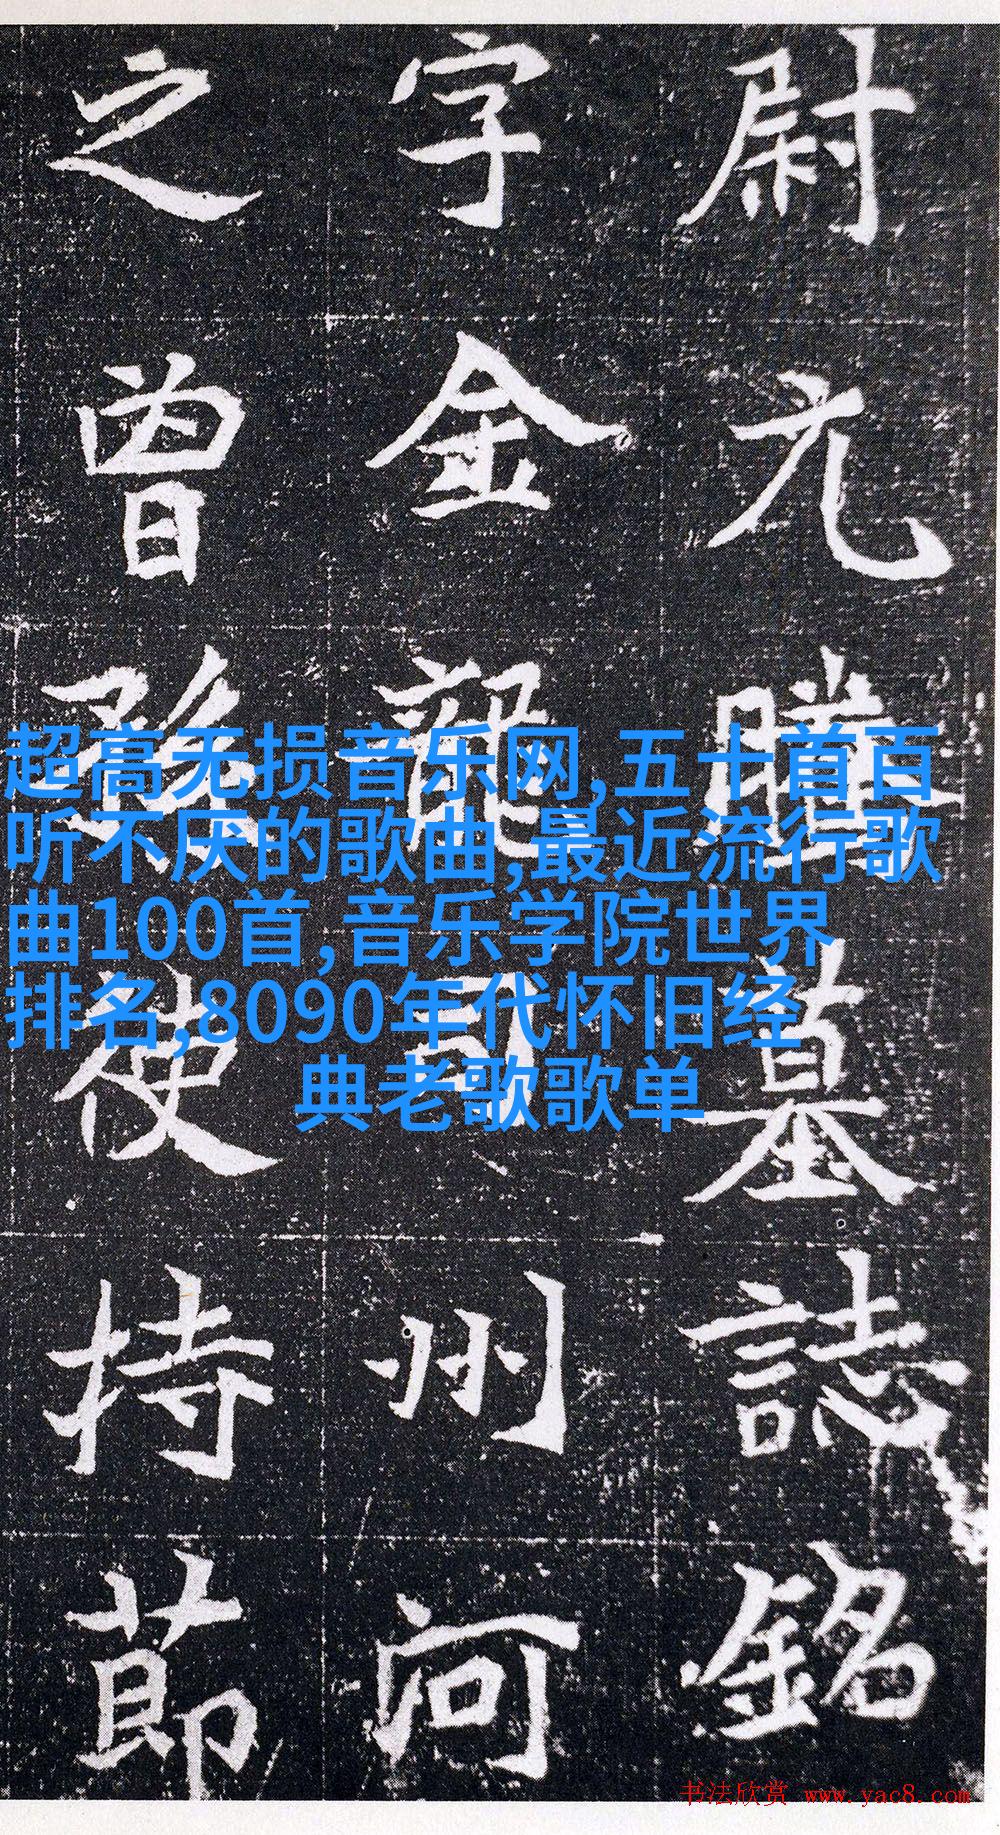 尉元騰墓誌銘
字金龍司州河
之曾孫使持節
超高无损音乐网,五十首百
听不厌的歌曲,最近流行歌
曲100首,音乐学院世界
排名,8090年代怀旧经
典老歌歌单
书法欣赏 www.yac8.com